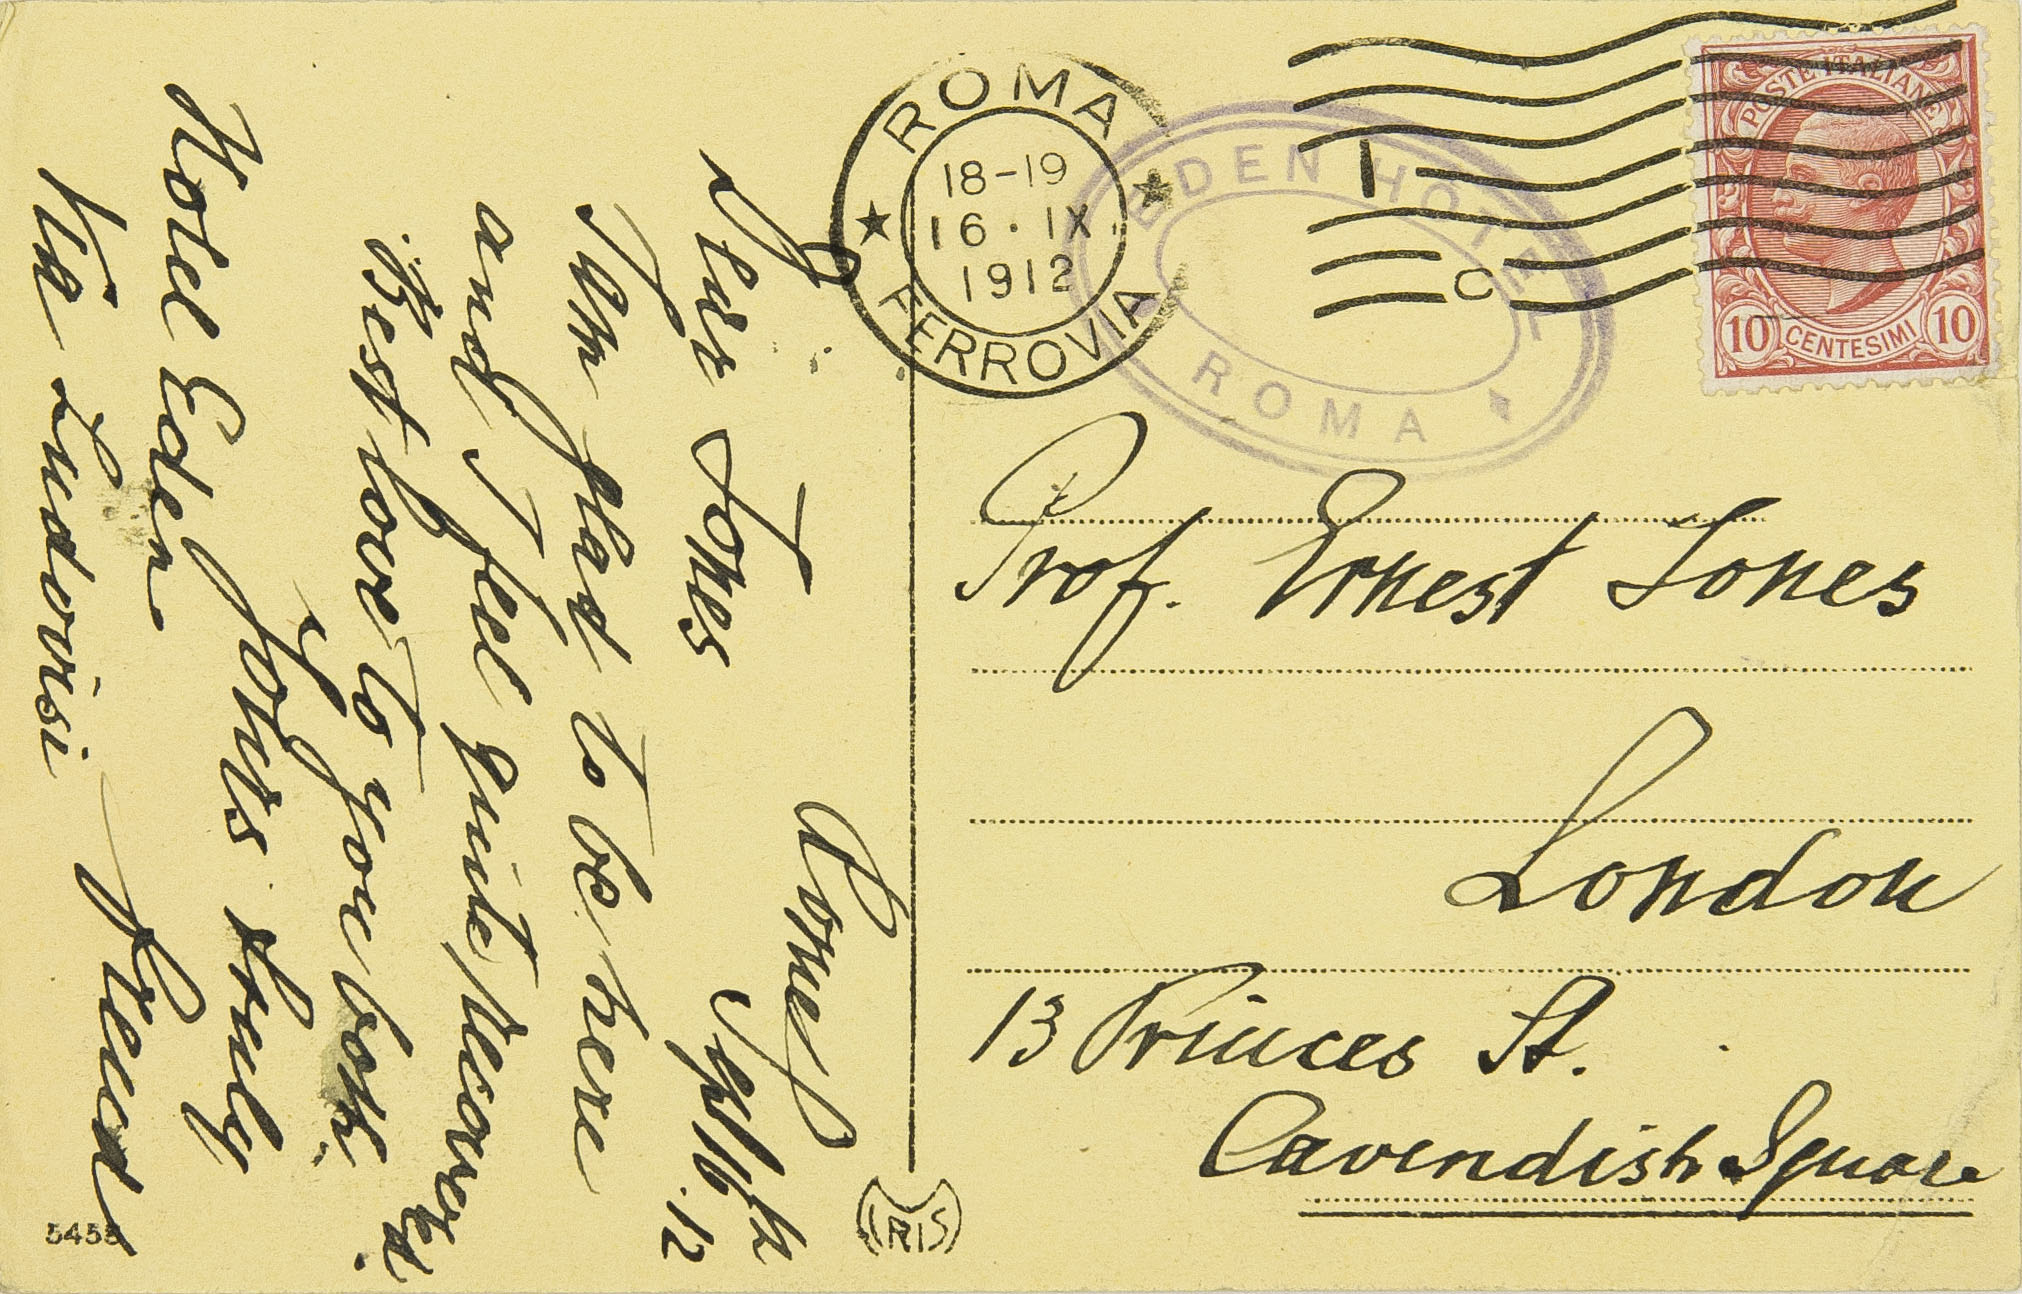 Rome
Sept 16th
.12
Dear Jones
I am glad to be here
and I feel quite recovered.
Best love to you both.
Yours truly
Freud
Hotel Eden
Via Ludovisi
ROMA
18-19
16·IX
1912
FERROVIA
EDEN HOTEL
ROMA
I
C
POSTE ITALIANE
10 CENTESIMI 10
Prof. Ernest Jones
London
13 Princes St.
Cavendish Square
IRIS
5453